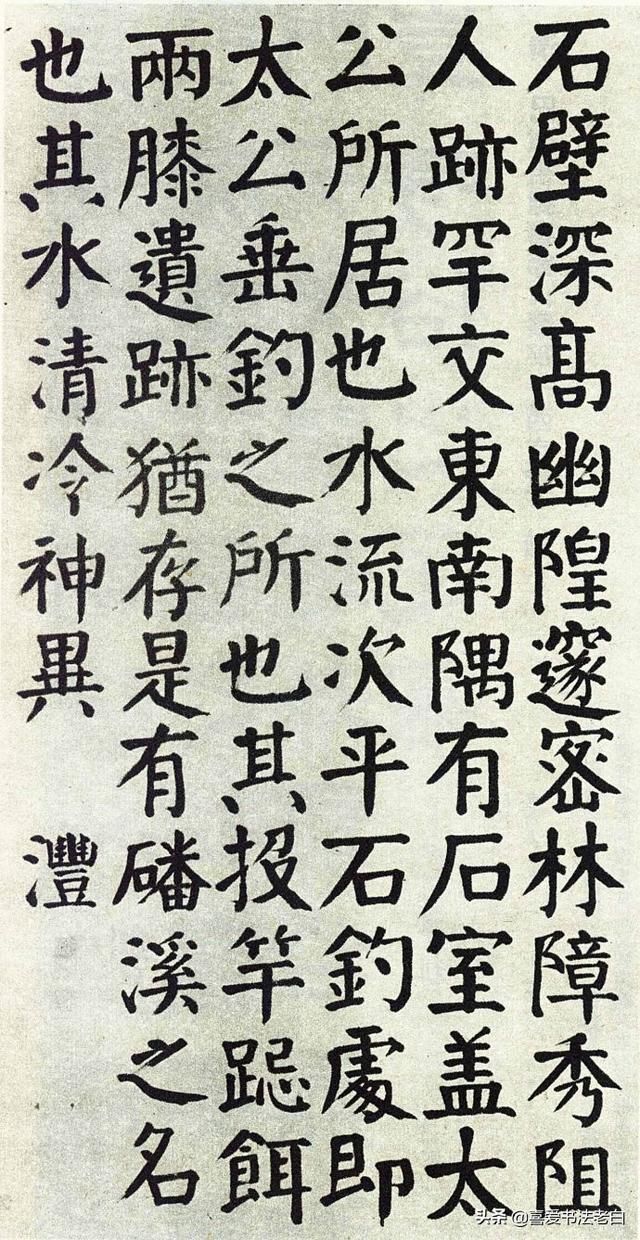 石壁深高幽隍邃密林障秀阻
人跡罕交東南隅有石室盖太
公所居也水流次平石釣處即
太公垂釣之所也其投竿跽餌
兩膝遺跡猶存是有磻溪之名
也其水清泠神異 灃
头条 @喜爱书法老白